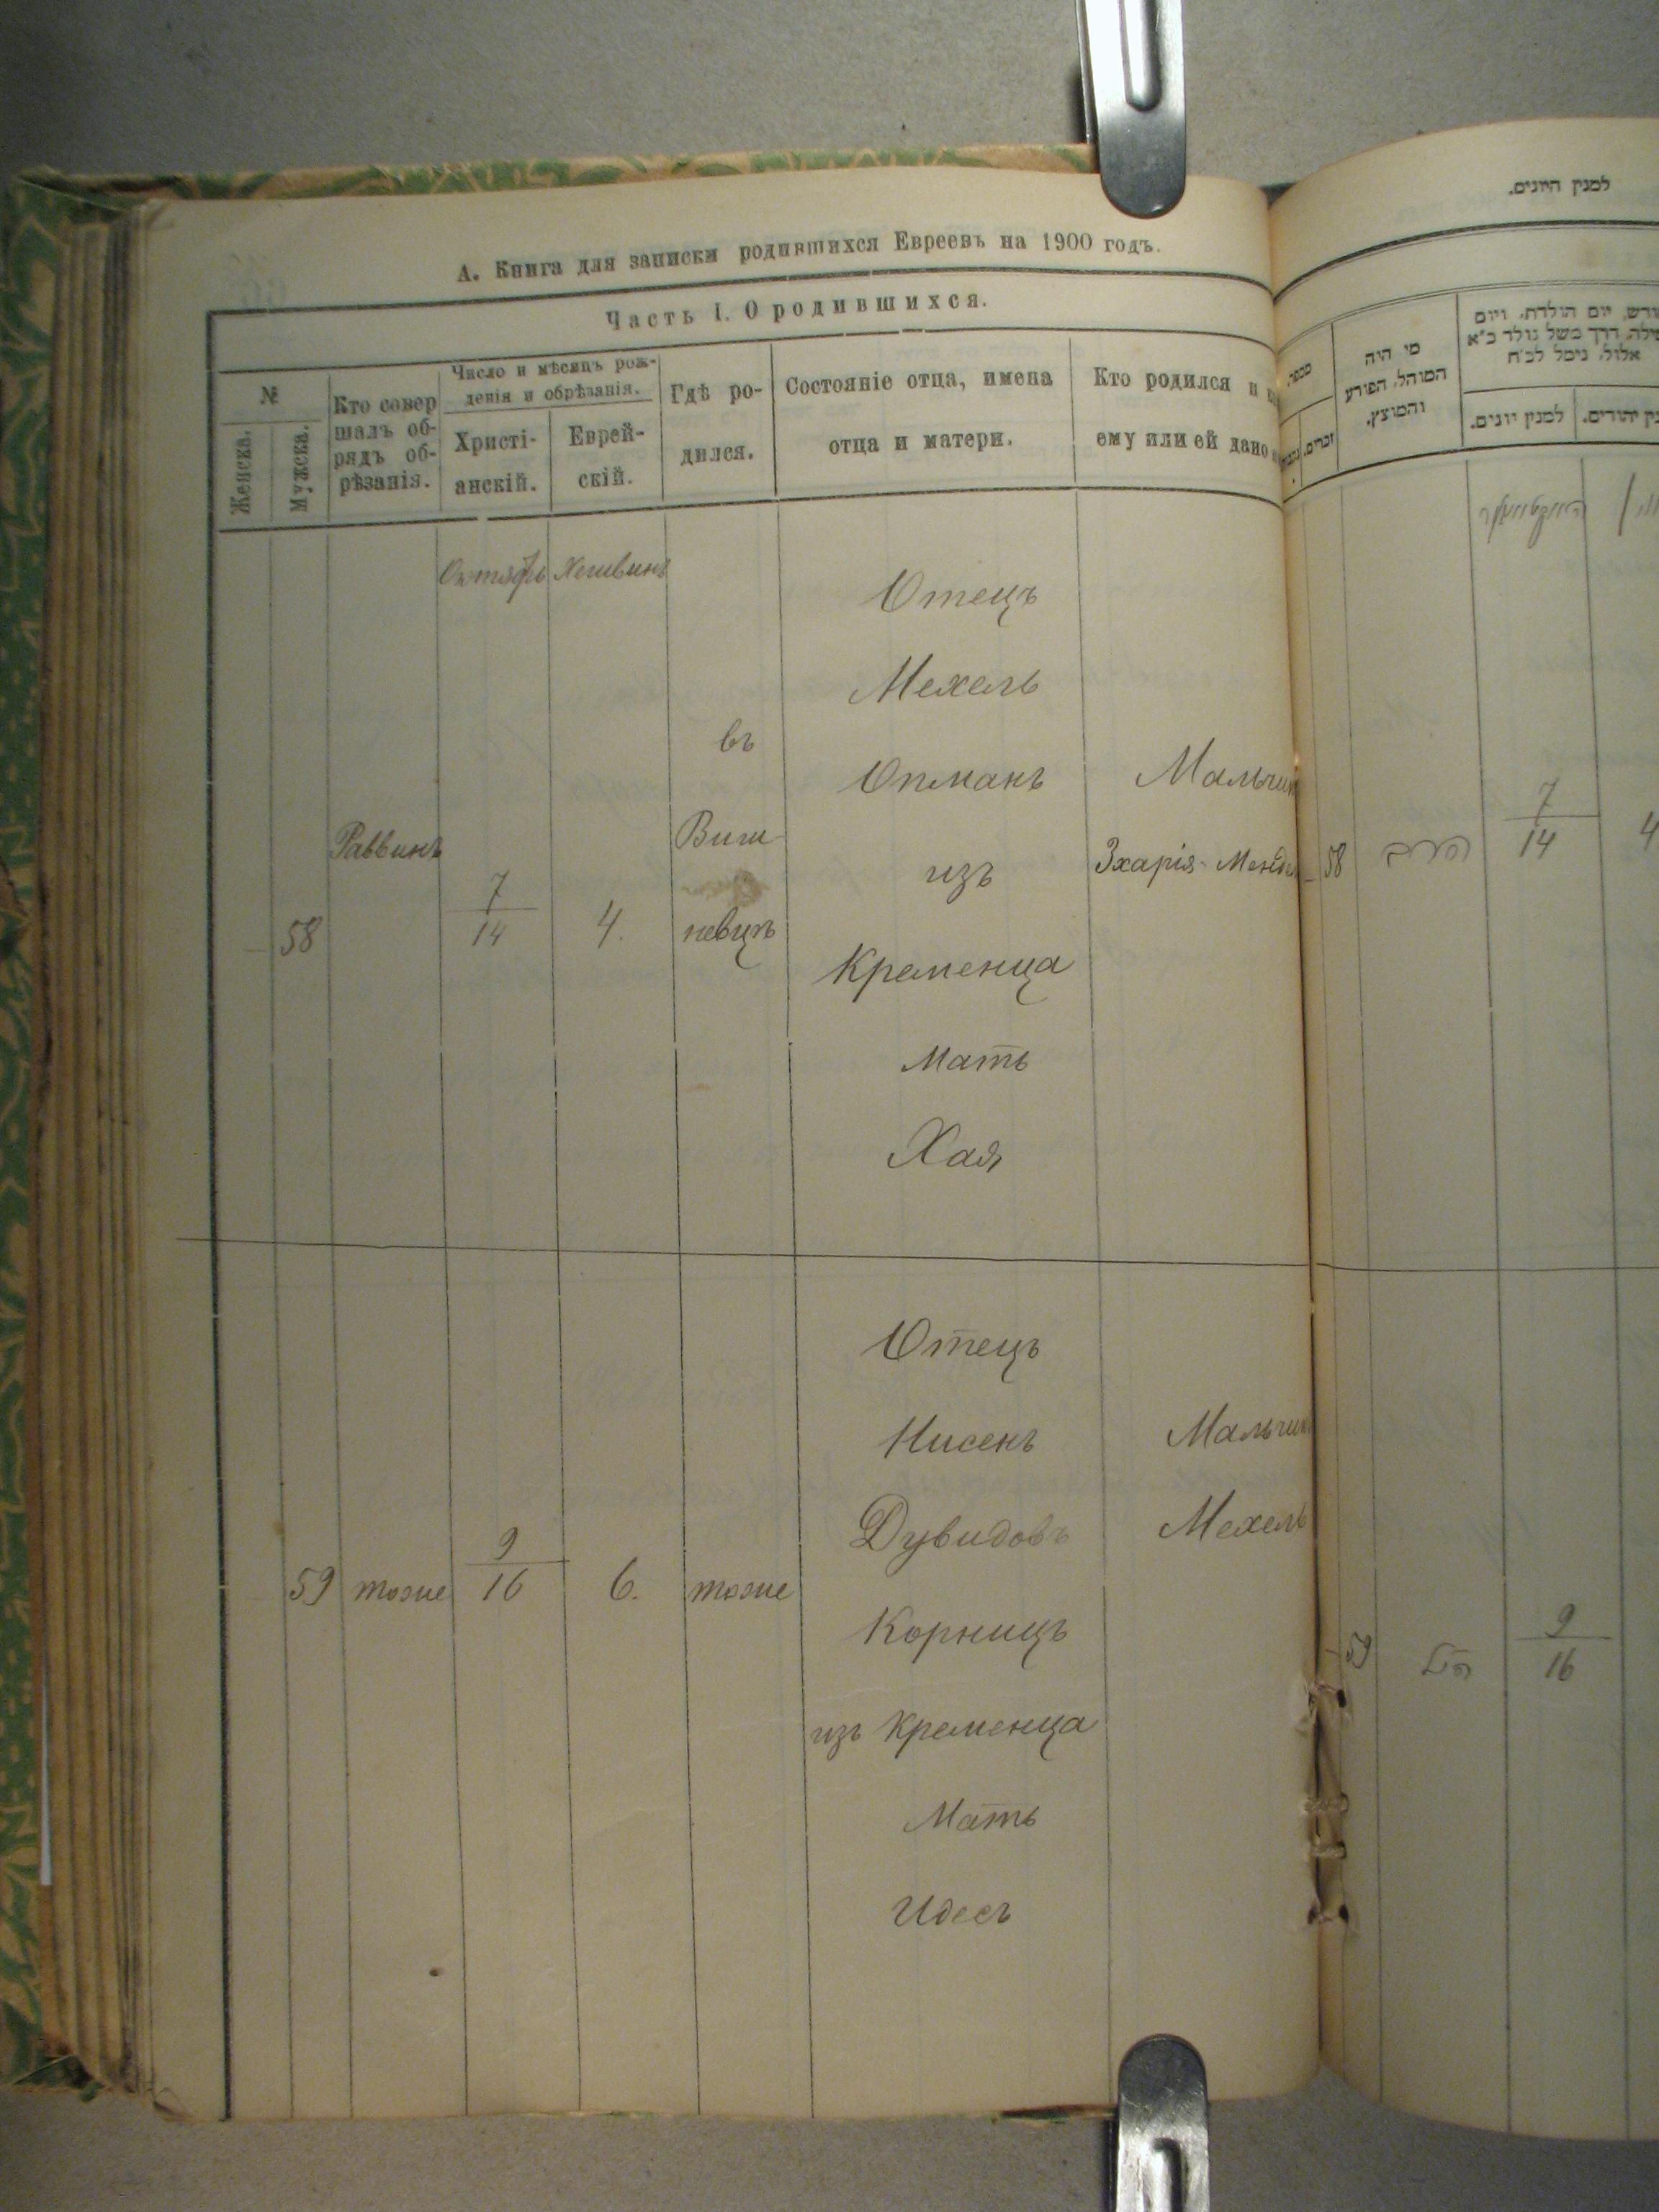 А. Книга для записки родившихся Евреевъ на 1900 годъ.
Часть I. О родившихся.
№
Женска.
Мужска.
Кто совер
шалъ об-
рядъ об-
рѣзанія.
Число и мѣсяцъ рож-
денія и обрѣзанія.
Христі-
анскій.
Еврей-
скій.
Гдѣ ро-
дился.
Состояніе отца, имена
отца и матери.
Кто родился и
ему или ей дано
Октябрь Хешвинъ
58
Раввинъ
7
14
4.
въ
Виш-
невцъ
Отецъ
Мехель
Опманъ
изъ
Кременца
Мать
Хая
Мальчик
Зхарія-Мендел
59 тоже
9
16
6. тоже
Отецъ
Нисенъ
Дувидовъ
Корницъ
изъ Кременца
Мать
Идесъ
Мальчик
Мехель
למנין היונים.
מספר
זכרים.
מי היה
המוהל, הפורע
והמוצץ.
יום הולדת, ויום
דרך משל נולד כ״א
אלול, נימל לכ״ח
למנין יונים.
יהודים.
58
הרב
7
14
4
59
הנ״ל
9
16